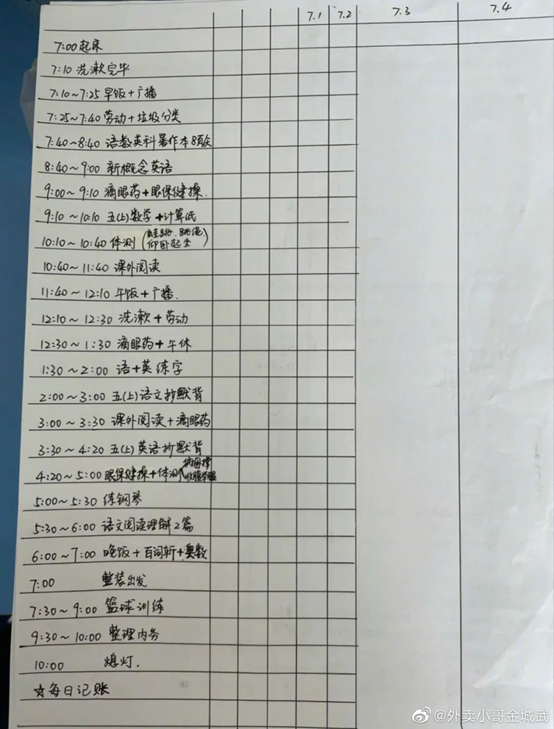 7.1 7.2 7.3 7.4
7:00 起床
7:10 洗漱完毕
7:10~7:25 早饭+广播
7:25~7:40 劳动+垃圾分类
7:40~8:40 语数英科暑作本8页
8:40~9:00 新概念英语
9:00~9:10 滴眼药+眼保健操.
9:10~10:10 五(上)数学+计算纸
10:10~10:40 体测(跳绳
仰卧起坐)
10:40~11:40 课外阅读
11:40~12:10 午饭+广播.
12:10~12:30 洗漱+劳动
12:30~1:30 滴眼药+午休
1:30~2:00 语+英练字
2:00~3:00 五(上)语文抄默背
3:00~3:30 课外阅读+滴眼药
3:30~4:20 五(上)英语抄默背
4:20~5:00 眼保健操+体测
5:00~5:30 练钢琴
5:30~6:00 语文阅读理解2篇
6:00~7:00 晚饭+百词斩+奥数
7:00 整装出发
7:30~9:00 篮球训练
9:30~10:00 整理内务
10:00 熄灯.
☆每日记账
@外卖小哥金城武